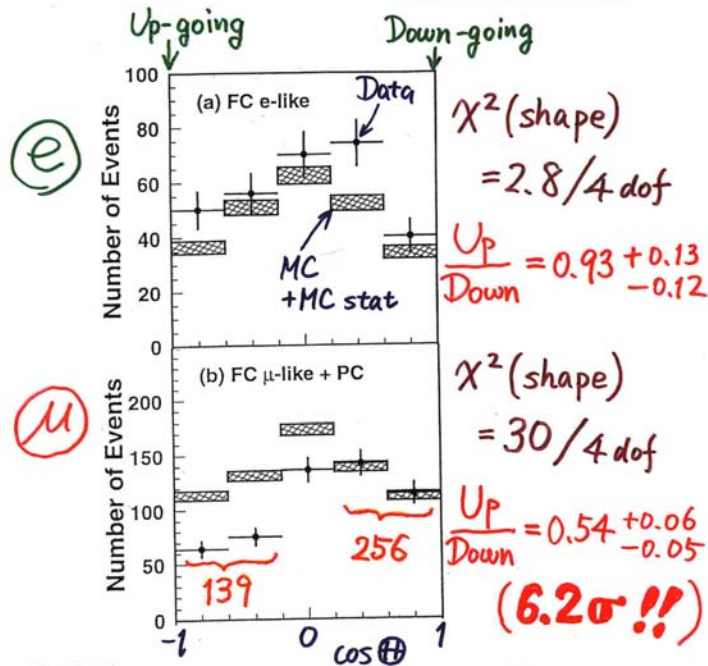 Up-going
Down-going
100
80
60
40
20
0
Number of Events
(a) FC e-like
Data
MC
+MC stat
e
χ² (shape)
= 2.8 / 4 dof
Up/Down = 0.93 +0.13 -0.12
200
150
100
50
0
Number of Events
(b) FC μ-like + PC
139
256
-1
0
1
cos Θ
μ
χ² (shape)
= 30 / 4 dof
Up/Down = 0.54 +0.06 -0.05
(6.2σ!!)